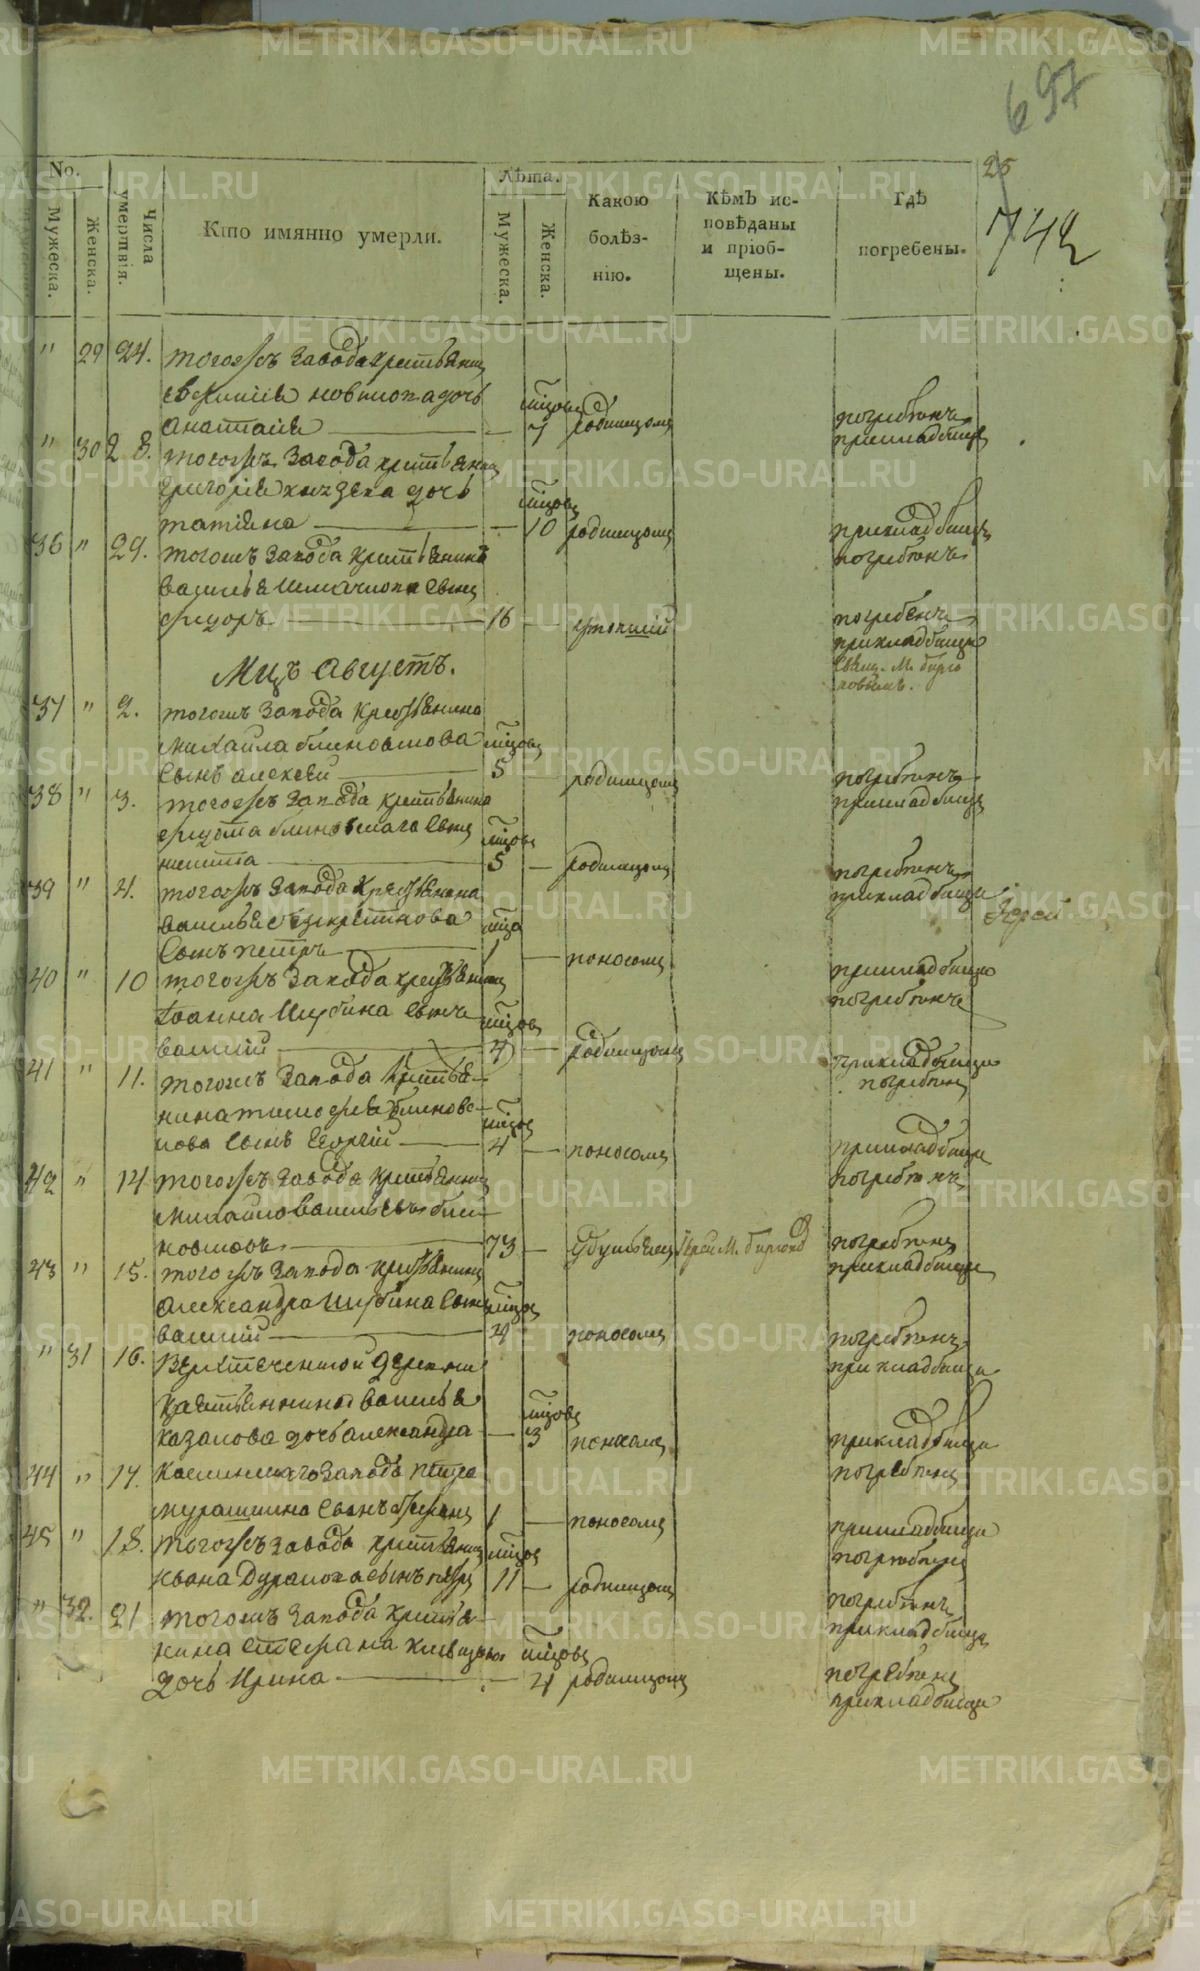 697
25
742
No.
Мужеска.
Женска.
Числа умертвія.
Кто имянно умерли.
Лѣта.
Мужеска.
Женска.
Какою болѣз-нію.
Кѣмъ ис-повѣданы и пріоб-щены.
Гдѣ погребены.
" 29 24. тогожъ завода крестьянина
новикова дочь мцовъ
Анастасия — 7 родимцомъ погребенъ
при кладбище
" 30 28. тогожъ завода крестьянина
Григорiя князева дочь мцовъ
татияна — 10 родимцомъ при кладбище
погребенъ
36 " 29. тогожъ завода крестьянина
василья сынъ
Федоръ — 16 — утопшiй погребенъ
при кладбище
Свящ. М. бирю
ковымъ.
Мцъ Августъ.
37 " 2. тогожъ завода крестьянина
михайла блиновскова мцовъ
сынъ алексей — 5 — родимцомъ погребенъ
при кладбище
38 " 3. тогожъ завода крестьянина
блиновскаго сынъ мцовъ
никита — 5 — родимцомъ погребенъ
при кладбище
39 " 4. тогожъ завода крестьянина
василья мца
сынъ петръ — 1 — поносомъ при кладбище
погребенъ
Iерей
40 " 10 тогожъ завода крестьянина
Iоанна Шубина сынъ мцовъ
василiй — 4 — родимцомъ при кладбище
погребенъ
41 " 11. тогожъ завода крестья-
нина тимофея блиновс-
кова сынъ Георгiй — 4 — поносомъ при кладбище
погребенъ
42 " 14 тогожъ завода крестьянинъ
михайло васильевъ бли-
новсковъ — 73 — Iерей М. бирюковъ погребенъ
при кладбище
43 " 15. тогожъ завода крестьянина
александра Шубина сынъ мцовъ
василiй — 4 поносомъ погребенъ
при кладбище
" 31 16. деревни
крестьянина василья мцовъ
казакова дочь александра — 3 поносомъ при кладбище
погребенъ
44 " 17. завода петра
мурашкина сынъ 1 — поносомъ при кладбище
погребенъ
45 " 18. тогожъ завода крестьянина мцовъ
Ивана сынъ 11 — родимцомъ погребенъ
при кладбище
" 32. 21 тогожъ завода крестья-
нина стефана мцовъ
дочь Ирина — 4 родимцомъ погребенъ
при кладбище
METRIKI.GASO-URAL.RU